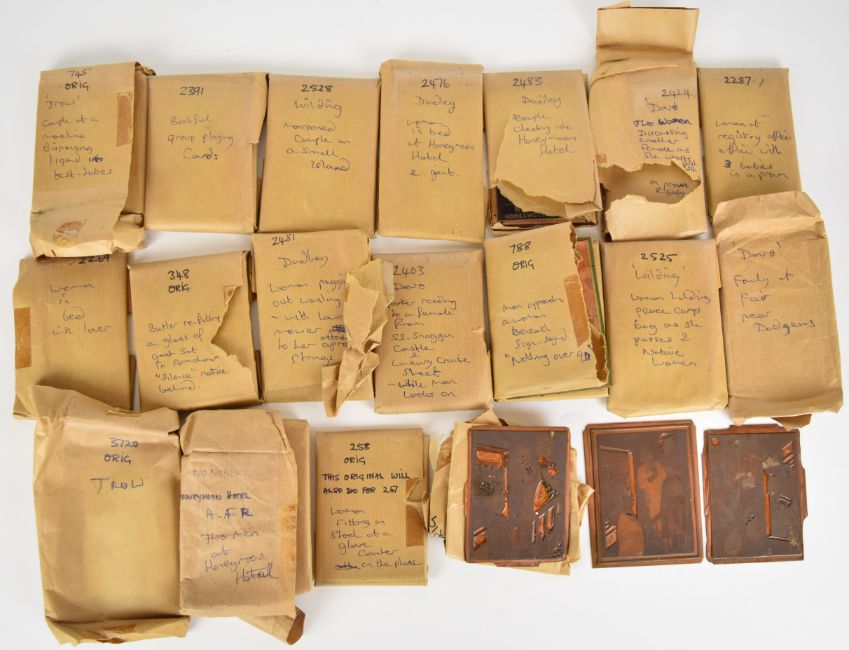 745
ORIG
'TROW'
Couple at a
machine
dispensing
liquid into
test-tubes
2391
Bashful
group playing
Cards
2528
Wilding
marooned
Couple on
a small
Island
2476
Dudley
woman
in bed
at Honeymoon
Hotel
& gent.
2483
Dudley
Couple
checking into
Honeymoon
Hotel
2424
'Davo'
TWO WOMEN
Discussing
another
female as
she walks
a pram
& baby
2287
woman at
registry office
office with
3 babies
in a pram
2269
Woman
in
bed
with lover
348
ORIG
Butler refilling
a glass of
gent sat
in Armchair
"Silence" notice
behind.
2481
Dudley
Woman pegging
out washing
- with lawn
mower
attached
to her apron
strings
2403
Davo
reading
to a female
from
S.S. Snoggin
Castle
&
Luxury Cruise
Sheet
- while man
looks on
788
ORIG
man approach
a woman
Beneath
Sign says
"Nothing over 9D
2525
'Wilding'
Woman holding
peace corps
bag as she
passes 2
Native
Women
'Davo'
Family at
Fair
near
Dodgems
3720
ORIG
TROW
NO NAME
HONEYMOON HOTEL
Two men
at
Honeymoon
Hotel
258
ORIG
THIS ORIGINAL WILL
ALSO DO FOR 267
Woman
Sitting on
Stool at a
glove
Counter
on the phone